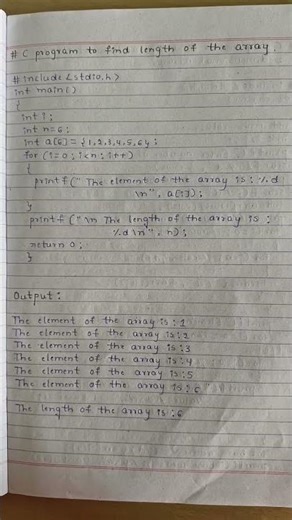 # C program to find length of the array.
#include <stdio.h>
int main()
{
int i;
int n=6;
int a[6] = {1,2,3,4,5,6};
for (i=0; i<n; i++)
{
printf(" The element of the array is: %d
\n", a[i]);
}
printf("\n The length of the array is :
%d \n", n);
return 0;
}
Output:
The element of the array is:1
The element of the array is:2
The element of the array is:3
The element of the array is:4
The element of the array is:5
The element of the array is:6
The length of the array is:6